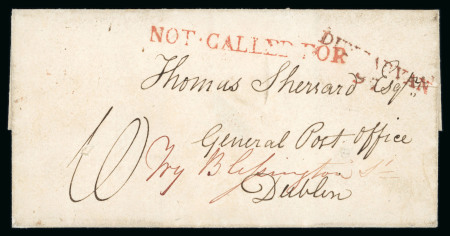 NOT CALLED FOR
DUNGARVAN
Thomas Sherrard Esqr
General Post Office
10
Try Blessington St
Dublin